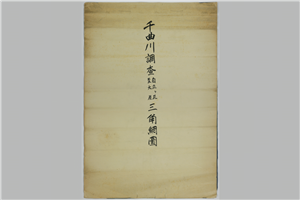 千曲川調査三角網圖